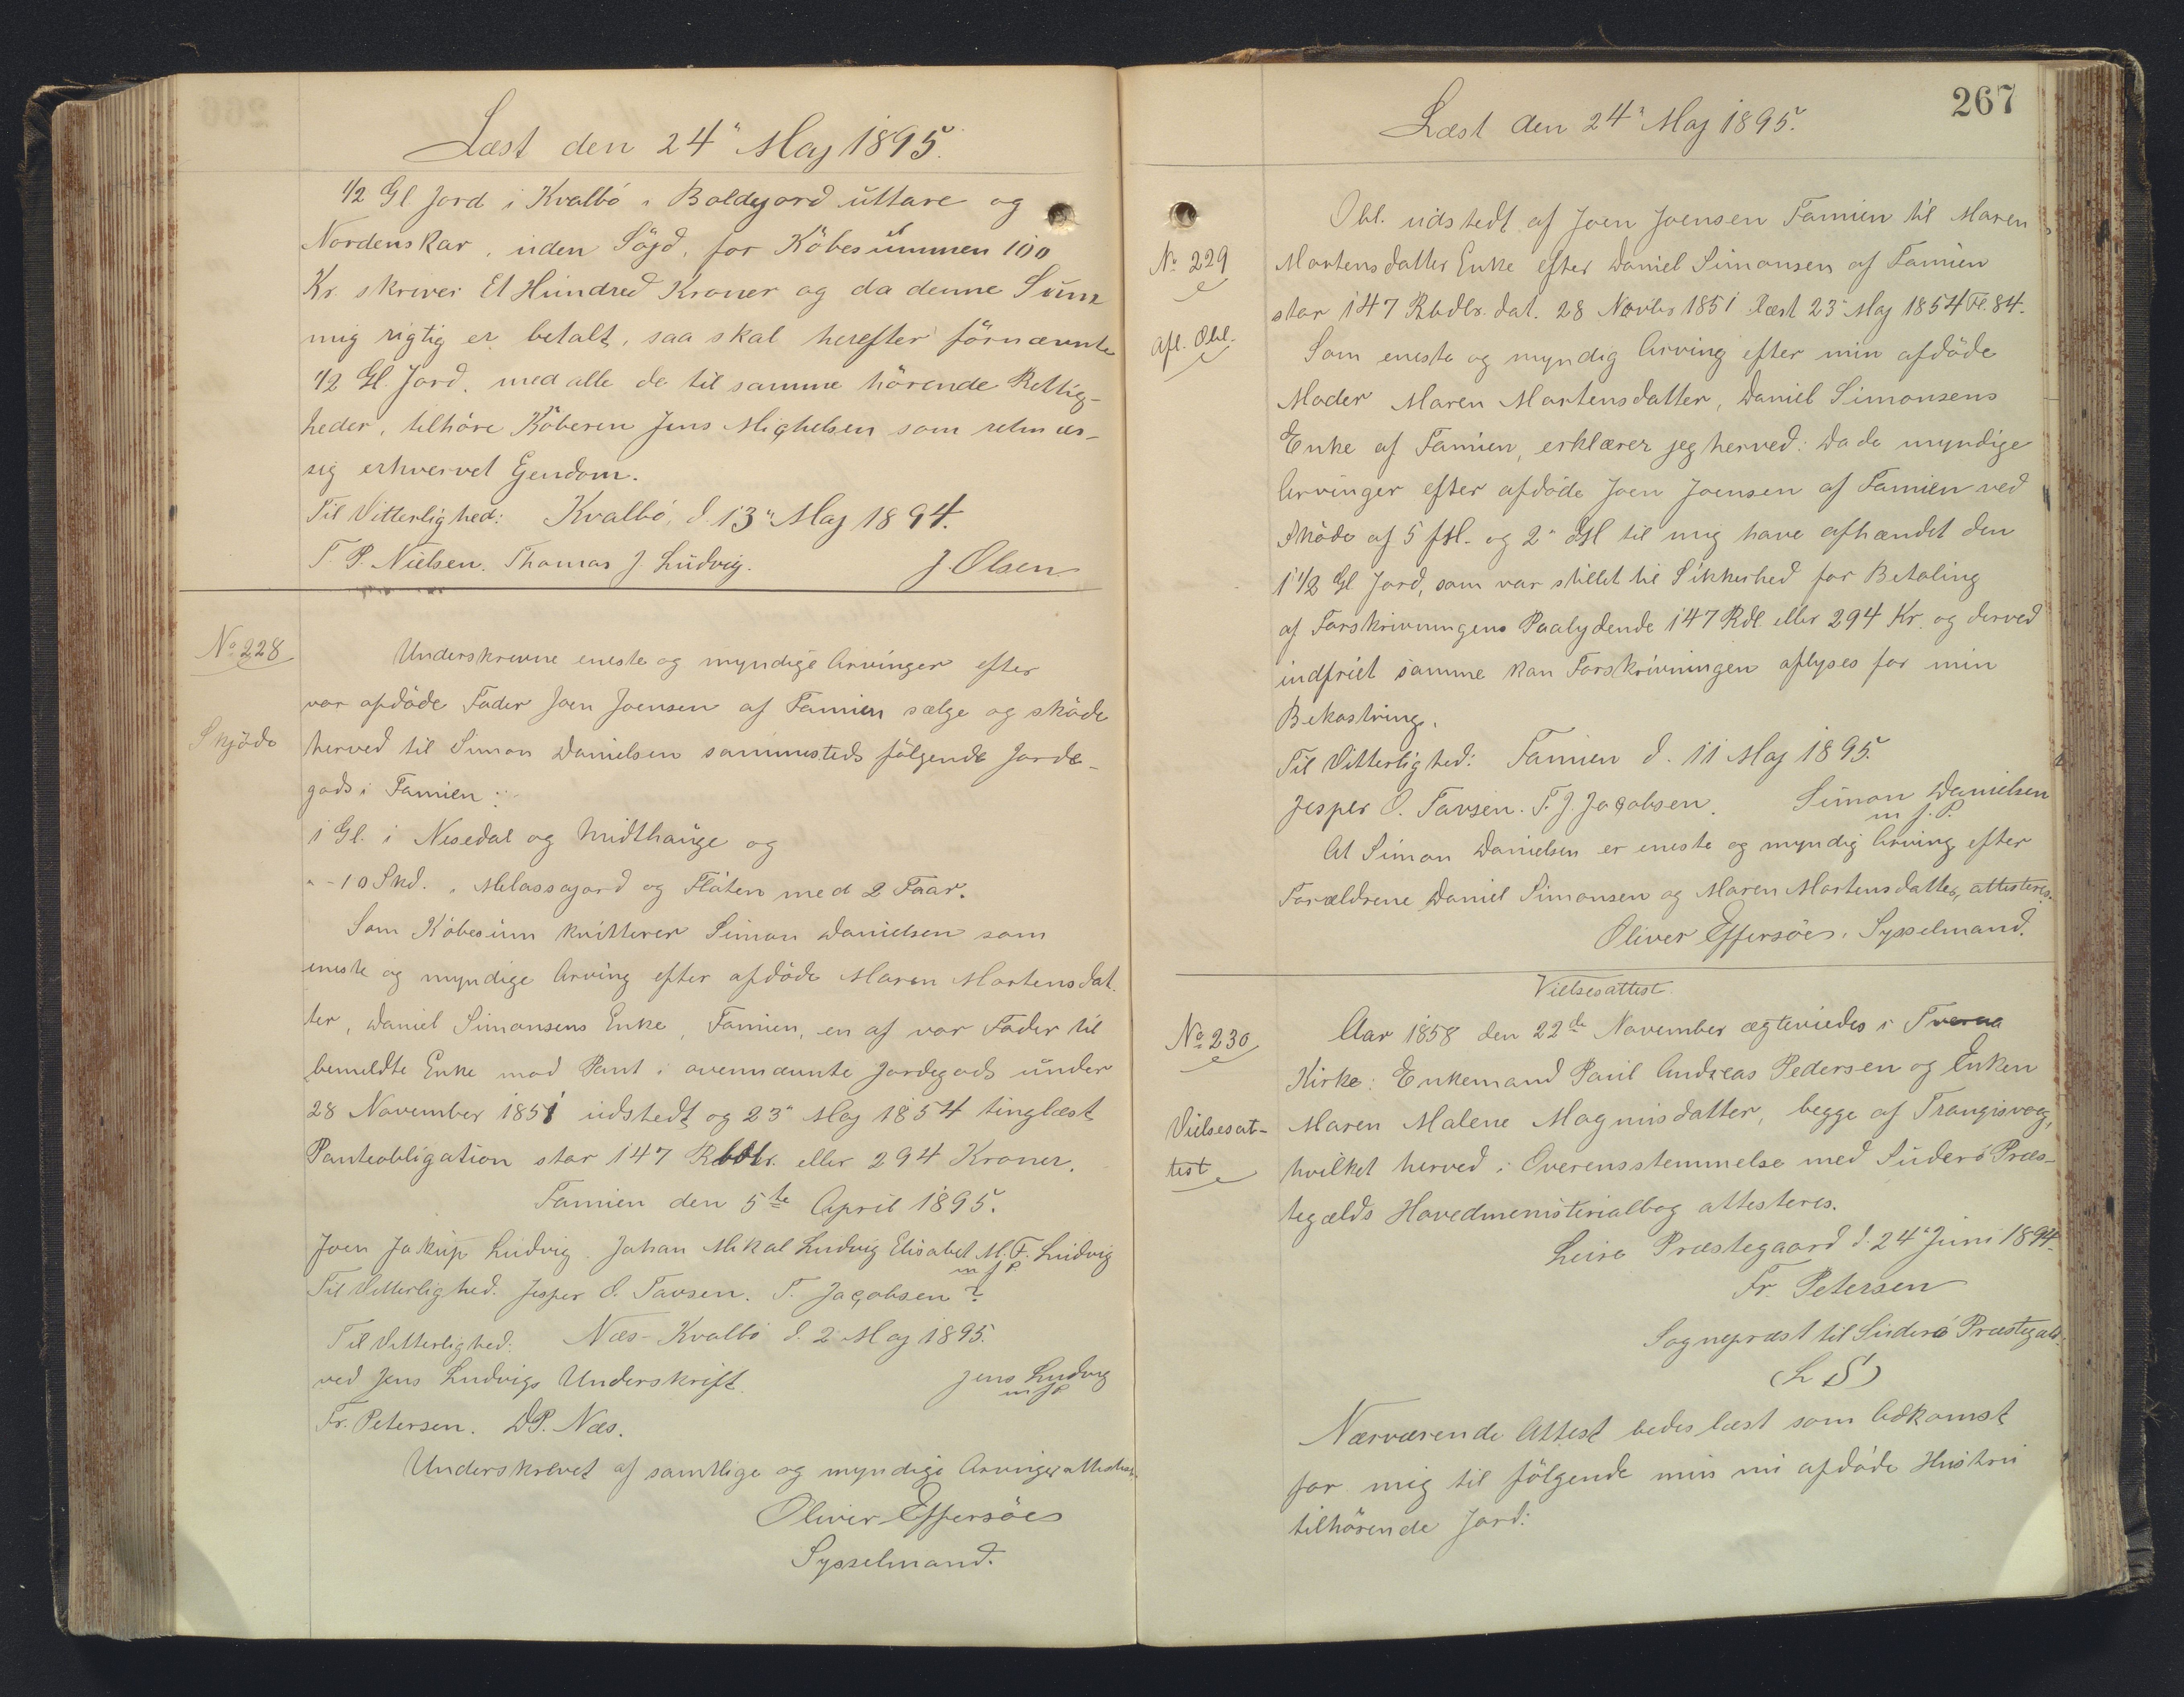 Læst den 24" Maj 1895.
1/2 Gl Jord i Kvalbö i Boldegjord uttare og
Nordenskar, uden Söjd, for Köbesummen 100
Kr. skriver Et Hundred Kroner og da denne Sum
mig rigtig er betalt, saa skal herefter förnævnte
1/2 Gl. Jord, med alle de til samme hörende Rettig-
heder, tilhöre Köberen Jens Mighelsen som retmæs-
sig erhvervet Gendom.
Til Vitterlighed: Kvalbö, d. 13" Maj 1894.
T. P. Nielsen. Thomas J. Ludvig. J. Olsen
No 228
Skjöde
Underskrevne eneste og myndige Arvinger efter
vor afdöde Fader Joen Joensen af Famien sælge og sköde
herved til Simon Danielsen sammesteds fölgende Jorde-
gods i Famien:
1 Gl. i Nesedal og Midthauge og
" - 10 Skd. i Melassagard og Flåten med 2 Faar.
Som Köbesum kvitterer Simon Danielsen som
eneste og myndige Arving efter afdöde Maren Mortensdat-
ter, Daniel Simonsens Enke, Famien, en af vor Fader til
bemeldte Enke mod Pant i ovennævnte Jordegods under
28 November 1851 udstedt og 23" Maj 1854 tinglæst
Panteobligation stor 147 Rbdlr. eller 294 Kroner.
Famien den 5te April 1895.
Joen Jakup Ludvig. Johan Mikal Ludvig Elisabet M. F. Ludvig
m f P.
Til Vitterlighed. Jesper O. Tavsen. T. Jacobsen ?
Til Vitterlighed: Næs-Kvalbö d. 2 Maj 1895.
ved Jens Ludvigs Underskrift. Jens Ludvig
m f P
Fr. Petersen. DP. Næs.
Underskrevet af samtlige og myndige Arvinger attesteres.
Oliver Effersöe
Sysselmand.
267
Læst den 24" Maj 1895.
No 229
afl. Obl.
Obl. udstedt af Joen Joensen Famien til Maren
Mortensdatter Enke efter Daniel Simonsen af Famien
stor 147 Rbdlr. dat. 28 Novbr 1851 læst 23" Maj 1854 Fl. 84.
Som eneste og myndig Arving efter min afdöde
Moder Maren Mortensdatter, Daniel Simonsens
Enke af Famien, erklærer jeg herved: Da de myndige
Arvinger efter afdöde Joen Joensen af Famien ved
Sköde af 5 f M. og 2" ds M til mig have afhændet den
1 1/2 Gl Jord, som var stillet til Sikkerhed for Betaling
af Forskrivningens Paalydende 147 Rdl. eller 294 Kr. og derved
indfriet samme kan Forskrivningen aflyses for min
Bekostning.
Til Vitterlighed: Famien d. 11 Maj 1895.
Jesper O. Tavsen. T. J. Jacobsen. Simon Danielsen
m f. P.
At Simon Danielsen er eneste og myndig Arving efter
Forældrene Daniel Simonsen og Maren Mortensdatter, attesteres.
Oliver Effersöe, Sysselmand.
No 230
Vielsesat-
test
Vielsesattest.
Aar 1858 den 22de November ægteviedes i Tveraa
Kirke: Enkemand Paul Andreas Pedersen og Enken
Maren Malene Magnusdatter, begge af Trangisvaag,
hvilket herved i Overensstemmelse med Suderö Præs-
tegælds Hovedmenisterialbog attesteres.
Præstegaard d. 24" Juni 1894.
Fr. Petersen
Sognepræst til Suderö Præstegæld.
(L S)
Nærværende Attest bedes læst som Adkomst
for mig til fölgende min nu afdöde Hustru
tilhörende Jord: